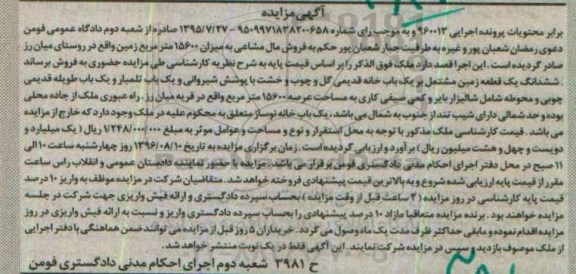 آگهی مزایده
برابر محتویات پرونده اجرایی ۹۶۰۰۱۳ و به موجب رای شماره ۹۵۰۹۹۷۱۸۳۸۲۰۰۶۵۸ - ۱۳۹۵/۷/۲۷ صادره از شعبه دوم دادگاه عمومی فومن
دعوی رمضان شعبان پور و غیره به طرفیت جبار شعبان پور حکم به فروش مال مشاعی به میزان ۱۵۶۰۰ متر مربع زمین واقع در روستای میان رز
صادر گردیده است. این اجرا قصد دارد ملک فوق الذکر را بر اساس قیمت پایه به شرح نظریه کارشناسی طی مزایده حضوری به فروش برساند
. ششدانگ یک قطعه زمین مشتمل بر یک باب خانه قدیمی گل و چوب و خشت با پوشش شیروانی و یک باب تلمبار و یک باب طویله قدیمی
چوبی و محوطه شامل شالیزار بایر و کمی صیفی کاری به مساحت عرصه ۱۵۶۰۰ متر مربع واقع در قریه میان رز. راه عبوری ملک از جاده محلی
بوده و حد شمالی دارای شیب تند از جنوب به شمال می باشد. یک باب خانه نوساز متعلق به محکوم علیه در ملک وجود دارد که خارج از مزایده
می باشد. قیمت کارشناسی ملک مذکور با توجه به محل استقرار و نوع و مساحت و عوامل موثر به مبلغ ۱/۲۴۸/۰۰۰/۰۰۰ ریال ( یک میلیارد و
دویست و چهل و هشت میلیون ریال ) برآورد و ارزیابی گردیده است. زمان برگزاری مزایده به تاریخ ۱۳۹۶/۰۸/۱۰ روز چهارشنبه ساعت ۱۰ الی
۱۱ صبح در محل دفتر اجرای احکام مدنی دادگستری فومن برقرار می باشد. مزایده با حضور نماینده دادستان عمومی و انقلاب راس ساعت
مقرر از قیمت پایه ارزیابی شده شروع و به بالاترین قیمت پیشنهادی فروخته خواهد شد. متقاضیان شرکت در مزایده موظف به واریز ۱۰ درصد
قیمت پایه کارشناسی در روز مزایده ( ۲ ساعت قبل از وقت مزایده ) بحساب سپرده دادگستری و ارائه فیش واریزی جهت شرکت در جلسه
مزایده خواهند بود. برنده مزایده متعاقبا مازاد ۱۰ درصد پیشنهادی را بحساب سپرده دادگستری واریز و نسبت به ارائه فیش واریزی در روز
مزایده اقدام نموده و مابقی حداکثر ظرف مدت یک ماه وصول می گردد. خریداران ۵ روز قبل از مزایده می توانند ضمن هماهنگی با دفتر اجرایی
از ملک موصوف بازدید و سپس در مزایده شرکت نمایند. این آگهی فقط در یک نوبت منتشر خواهد شد.
ح ۳۹۸۱ شعبه دوم اجرای احکام مدنی دادگستری فومن